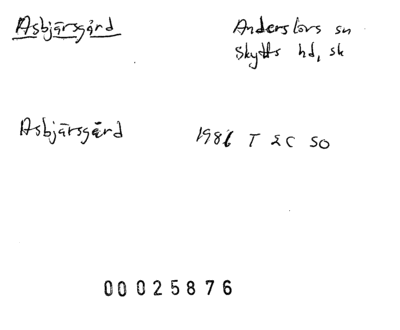 Asbjärsgård
Anderslövs sn
Skytts hd, sk
Asbjärsgård
1981 T 2C SO
00025876